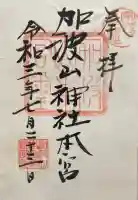 奉拝
加波山神社本宮
令和三年七月二十三日